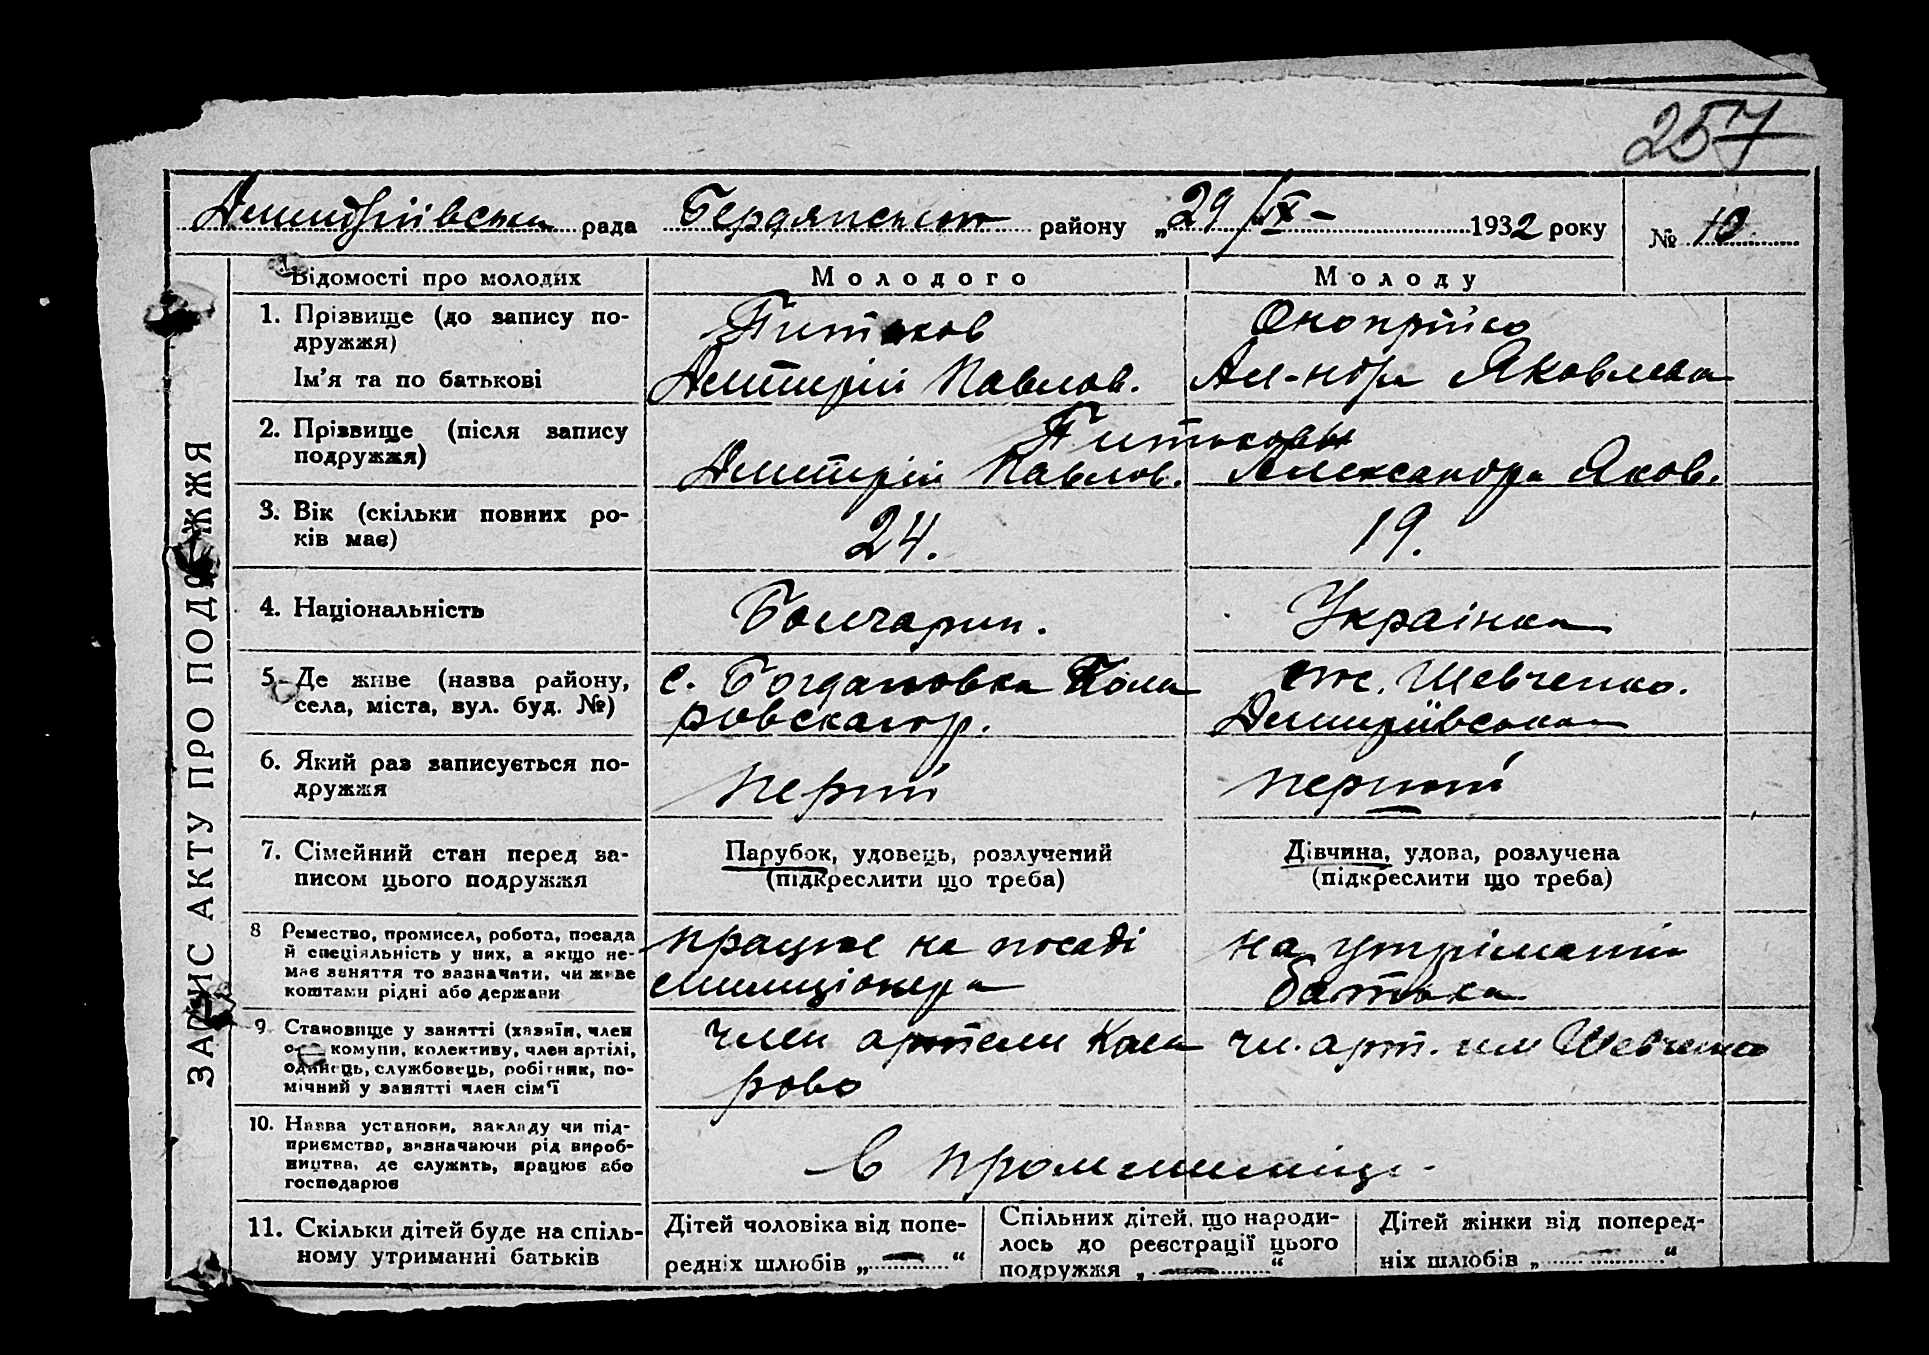 257
Дмитріївська рада Бердянського району „29/IX- 1932 року № 10
ЗАПИС АКТУ ПРО ПОДРУЖЖЯ
Відомості про молодих Молодого Молоду
1. Прізвище (до запису по-
дружжя)
Питаков Оноприйко
Ім'я та по батькові Дмитрій Павлов. Ал-ндра Яковлевна
2. Прізвище (після запису
подружжя)
Питаковы
Дмитрій Павлов. Александра Яков.
3. Вік (скільки повних ро-
ків має)
24. 19.
4. Національність Болгарин. Українка
5. Де живе (назва району,
села, міста, вул. буд. №)
с. Богдановка Кола
ровскаго р.
Шевченко.
Дмитріївська
6. Який раз записується по-
дружжя
перший перший
7. Сімейний стан перед за-
писом цього подружжя
Парубок, удовець, розлучений
(підкреслити що треба)
Дівчина, удова, розлучена
(підкреслити що треба)
8 Ремество, промисел, робота, посада
й спеціяльність у них, а якщо не-
має заняття то зазначити, чи живе
коштами рідні або держави
працює на посаді
милиціонера
на утріманні
батька
9. Становище у занятті (хазяїн, член
комуни, колективу, член артілі,
одинець, службовець, робітник, по-
мічний у занятті член сім'ї
член артели Кола
рово
чл. арт. им Шевченко
10. Назва установи, закладу чи під-
приємства, визначаючи рід вироб-
ництва, де служить, працює або
господарює
в пром милиції
11. Скільки дітей буде на спіль-
ному утриманні батьків
Дітей чоловіка від попе-
редніх шлюбів „ — “
Спільних дітей, що народи-
лось до реєстрації цього
подружжя „ — “
Дітей жінки від поперед-
ніх шлюбів „ — “